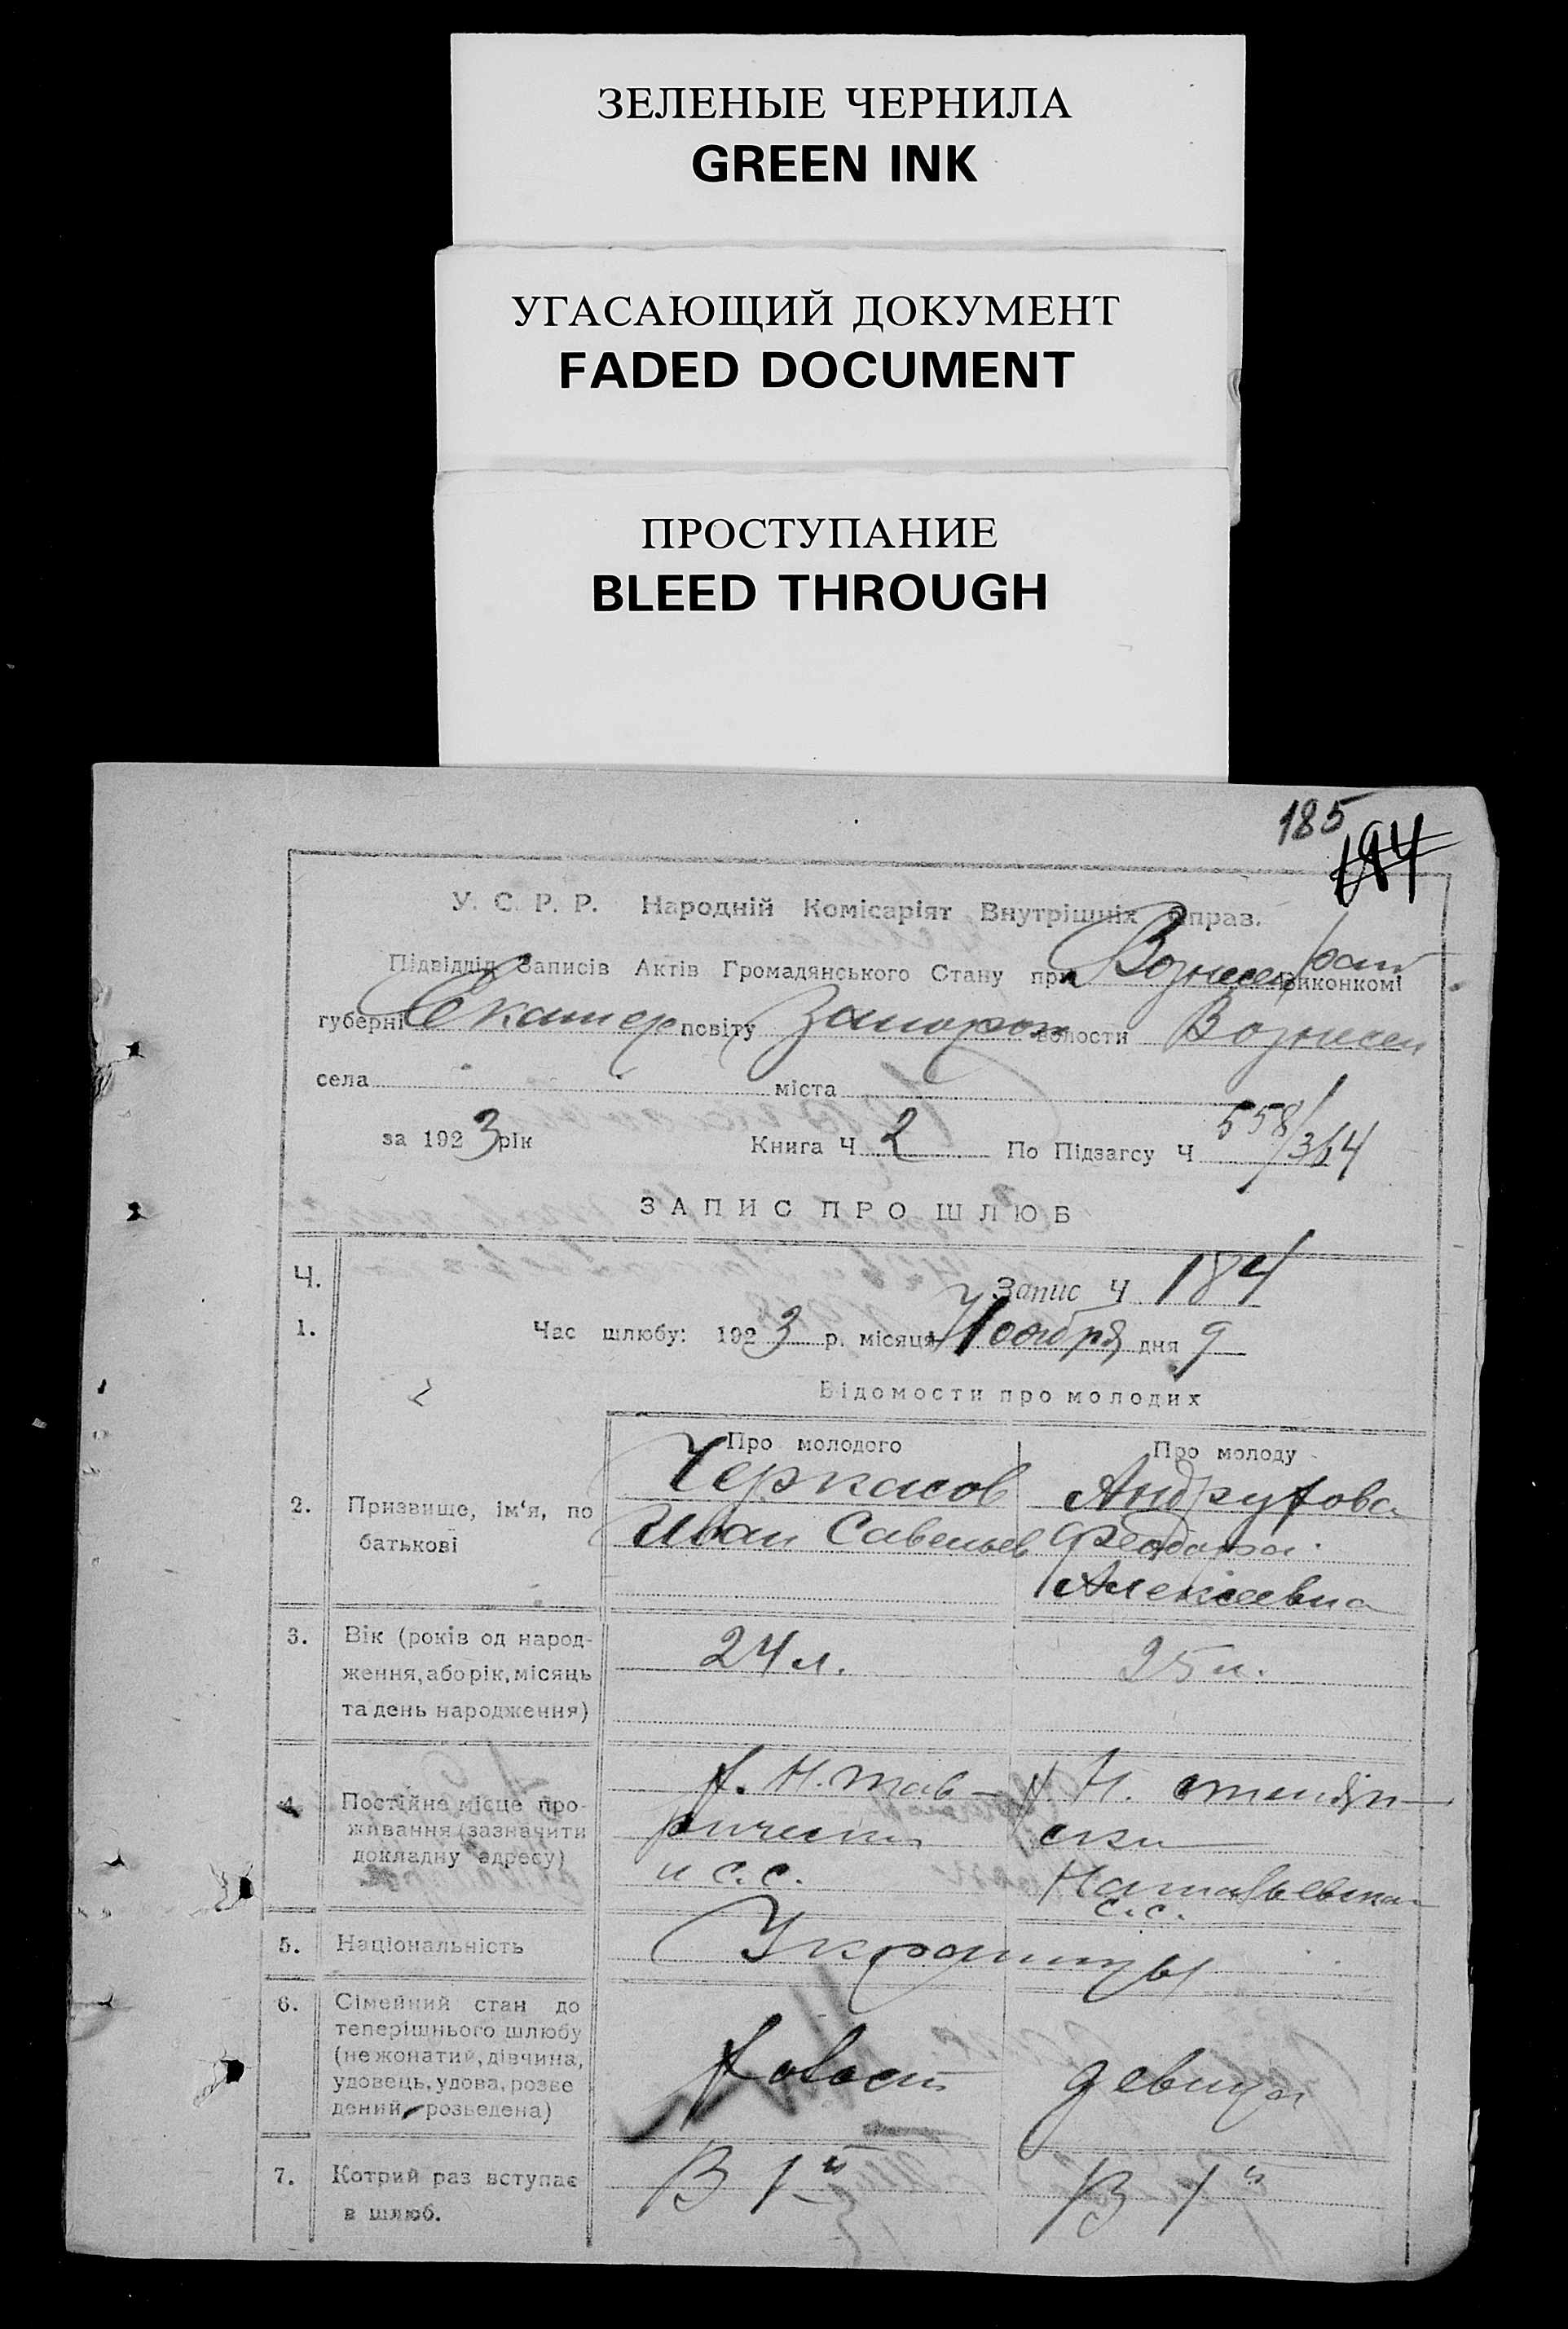 ЗЕЛЕНЫЕ ЧЕРНИЛА
GREEN INK
УГАСАЮЩИЙ ДОКУМЕНТ
FADED DOCUMENT
ПРОСТУПАНИЕ
BLEED THROUGH
185
184
У. С. Р. Р. Народній Комісаріят Внутрішніх Справ.
Підвідділ Записів Актів Громадянського Стану при Вознесен рай виконкомі
губерні Екатер повіту Запорож волости Вознесен
села міста
за 1923 рік Книга Ч 2 По Підзагсу Ч 558/364
ЗАПИС ПРО ШЛЮБ
Ч. Запис Ч 184
1. Час шлюбу: 1923 р. місяця Ноября дня 9
Відомости про молодих
Про молодого Про молоду
Черкасов
2. Призвище, ім‘я, по батькові
Иван Савельев Феодора
Алексеевна
3. Вік (років од народ-
ження, або рік, місяць
та день народження)
24 л. 25 л.
4. Постійне місце про-
живання (зазначити
докладну адресу)
и с.с.
с.с.
5. Національність
Украинцы
6. Сімейний стан до
теперішнього шлюбу
(не жонатий, дівчина,
удовець, удова, розве
дений, розведена)
холост девица
7. Котрий раз вступає
в шлюб.
В 1й В 1й